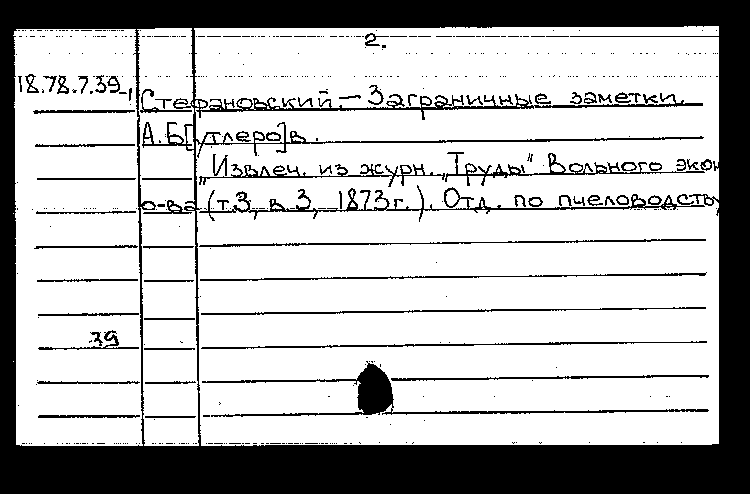 2.
18.78.7.39-1 Стефановский.- Заграничные заметки.
А.Б[утлеро]в.
„Извлеч. из журн. „Труды" Вольного экон
о-ва (т.3, в 3, 1873г.). Отд. по пчеловодству
39